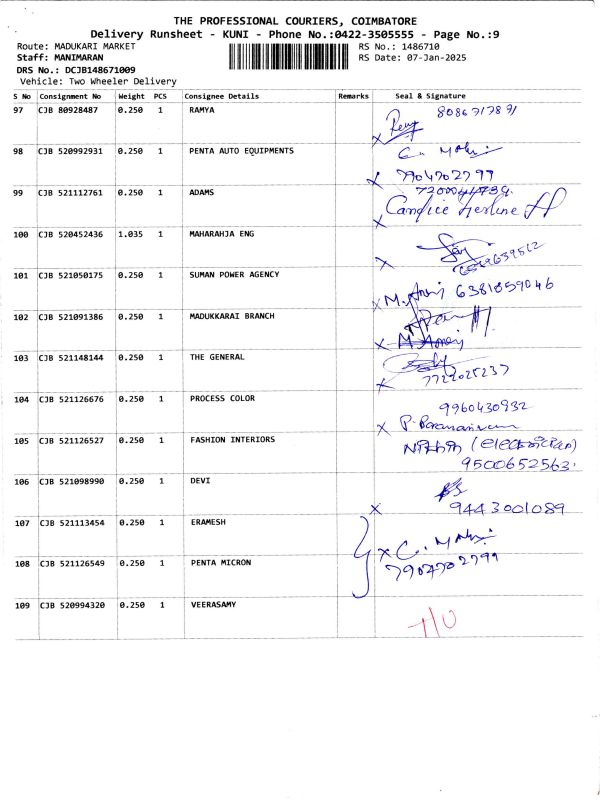 THE PROFESSIONAL COURIERS, COIMBATORE
Delivery Runsheet - KUNI - Phone No.:0422-3505555 - Page No.:9
Route: MADUKARI MARKET RS No.: 1486710
Staff: MANIMARAN RS Date: 07-Jan-2025
DRS No.: DCJB148671009
Vehicle: Two Wheeler Delivery
S No Consignment No Weight PCS Consignee Details Remarks Seal & Signature
97 CJB 80928487 0.250 1 RAMYA
98 CJB 520992931 0.250 1 PENTA AUTO EQUIPMENTS C. Mohi
7904702799
99 CJB 521112761 0.250 1 ADAMS
Candice
100 CJB 520452436 1.035 1 MAHARAHJA ENG
101 CJB 521050175 0.250 1 SUMAN POWER AGENCY 6381859046
102 CJB 521091386 0.250 1 MADUKKARAI BRANCH
103 CJB 521148144 0.250 1 THE GENERAL
7722025237
104 CJB 521126676 0.250 1 PROCESS COLOR 9960430932
105 CJB 521126527 0.250 1 FASHION INTERIORS
9500652563
106 CJB 521098990 0.250 1 DEVI
9443001089
107 CJB 521113454 0.250 1 ERAMESH
108 CJB 521126549 0.250 1 PENTA MICRON
109 CJB 520994320 0.250 1 VEERASAMY